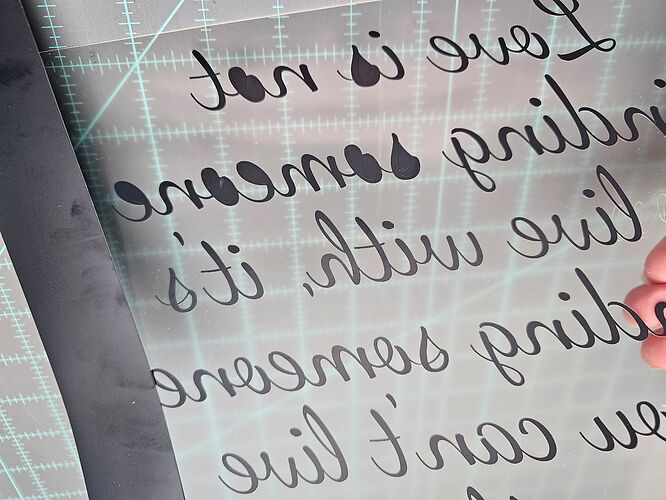 Love is not
inding someone
live with, it's
nding someone
ou can't live